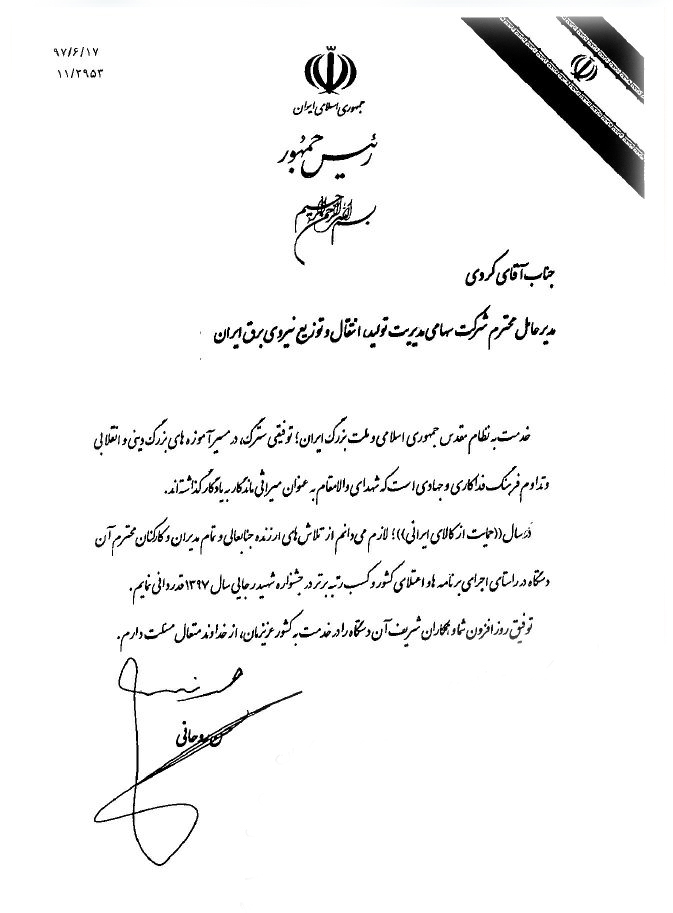 ۹۷/۶/۱۷
۱۱/۲۹۵۳
جمهوری اسلامی ایران
رئیس جمهور
بسم الله الرحمن الرحیم
جناب آقای کردی
مدیرعامل محترم شرکت سهامی مدیریت تولید، انتقال و توزیع نیروی برق ایران
خدمت به نظام مقدس جمهوری اسلامی و ملت بزرگ ایران؛ توفیقی سترگ، در مسیر آموزه های بزرگ دینی و انقلابی
و تداوم فرهنگ فداکاری و جهادی است که شهدای والامقام به عنوان میراثی ماندگار به یادگار گذاشته‌اند.
در سال ((حمایت از کالای ایرانی))؛ لازم می‌دانم از تلاش های ارزنده جنابعالی و تمام مدیران و کارکنان محترم آن
دستگاه در راستای اجرای برنامه ها و اعتلای کشور و کسب رتبه برتر در جشنواره شهید رجایی سال ۱۳۹۷ قدردانی نمایم.
توفیق روز افزون شما و همکاران شریف آن دستگاه را در خدمت به کشور عزیزمان، از خداوند متعال مسئلت دارم.
حسن روحانی